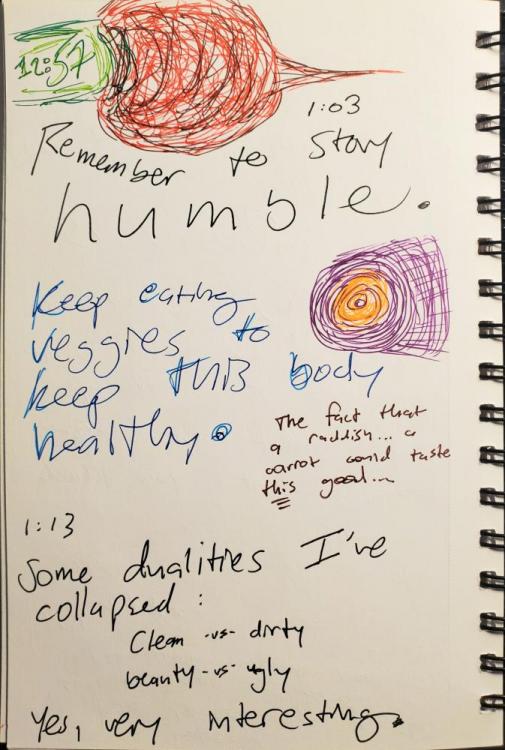 12:57
1:03
Remember to stay
humble.
Keep eating
veggies to
keep THIS body
healthy.
The fact that
a raddish... a
carrot could taste
this good...
1:13
Some dualities I've
collapsed:
Clean -vs- dirty
beauty -vs- ugly
Yes, very interesting.